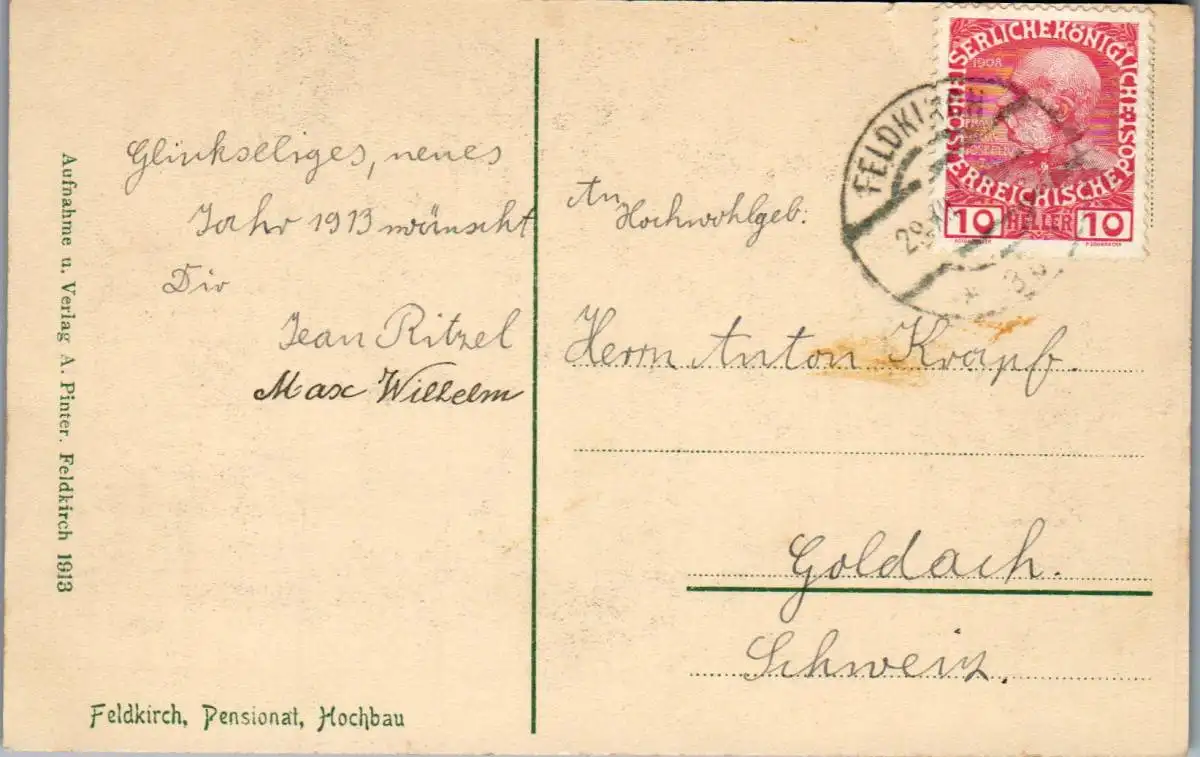 Glückseliges, neues
Jahr 1913 wünscht
Dir
Jean Ritzel
Max Wilhelm
Aufnahme u. Verlag A. Pinter. Feldkirch 1913
Feldkirch, Pensionat, Hochbau
KAISERLICHE KÖNIGLICHE ÖSTERREICHISCHE POST
1908
10 HELLER 10
FELDKIRCH
An
Hochwohlgeb.
Herrn Anton Krapf.
Goldach.
Schweiz.